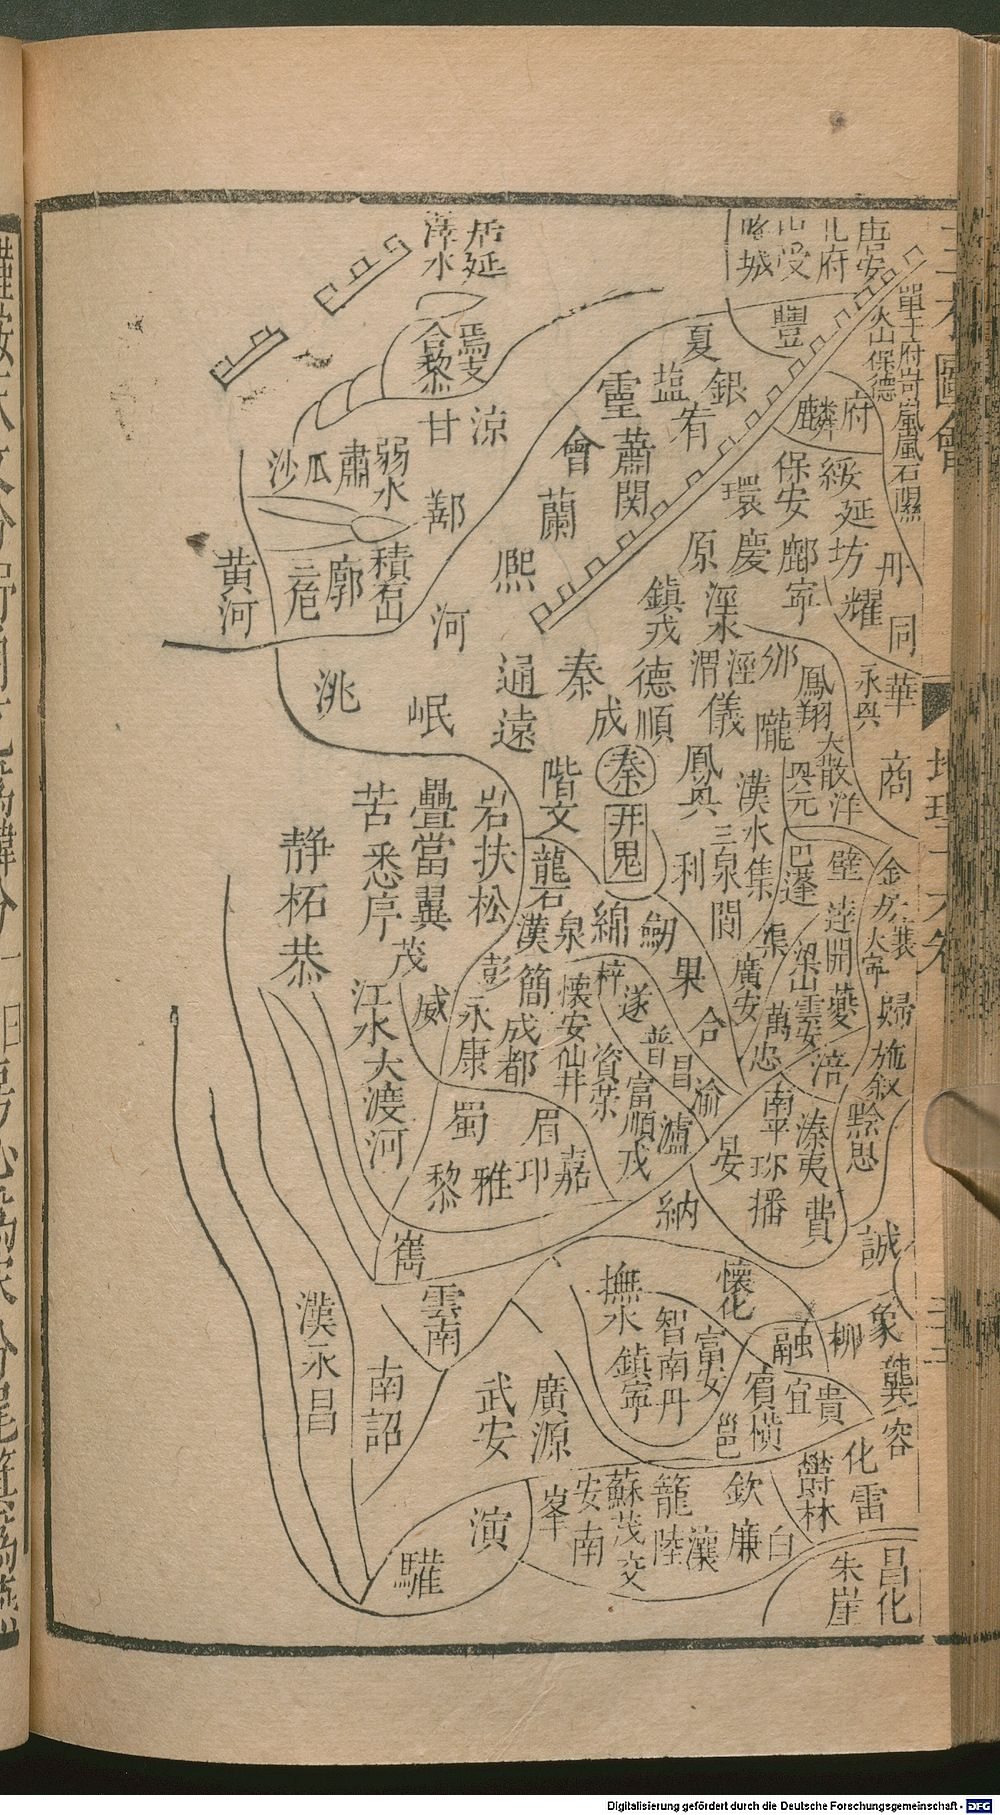 三才圖會
地理十六卷
三三
唐安
北府
受
城
單于府岢嵐嵐石隰
火山保德
豐
麟府
居延
澤水
焉支
合黎
夏
塩
銀
宥
靈
蕭関
會
蘭
熙
涼
甘
肅
瓜
沙
弱水
鄯
積石山
廓
黄河
河
洮
岷
通遠
秦
成
德順
鎮戎
原
慶
環
保安
綏
延
鄜
坊
寧
丹
同
耀
涇水
涇
渭
儀
隴
鳳翔
永興
華
商
大散
洋
興元
鳳興
漢水
三泉
集
利
閬
秦
井鬼
階文
龍石
岩扶松
疊當翼
苦悉
茂
静柘恭
巴蓬
壁
達
開
夔
渠
梁山
雲安
廣安
萬
忠
涪
金
大寧
歸
施
黔
思
綿
劍
泉
漢
梓
遂
果
合
普
昌
渝
彭
簡
懷安
仙井
資
富順
戎
瀘
威
永康
成都
江水
大渡河
蜀
眉
嘉
黎
雅
南平
溱
夷
珍
播
費
晏
納
誠
嶲
雲南
漢永昌
南詔
撫水
懷化
智
南丹
鎮寧
富安
融
柳
象
龔
容
賓
橫
宜
貴
邕
武安
廣源
化
雷
欝林
欽
廉
白
籠
陸
瀼
蘇茂
交
安南
峯
演
驩
昌化
朱崖
Digitalisierung gefördert durch die Deutsche Forschungsgemeinschaft - DFG